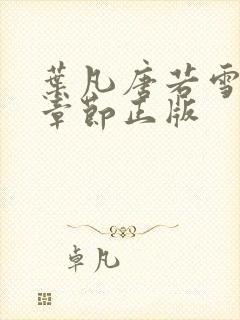 葉凡唐若雪
章節正版
卓凡